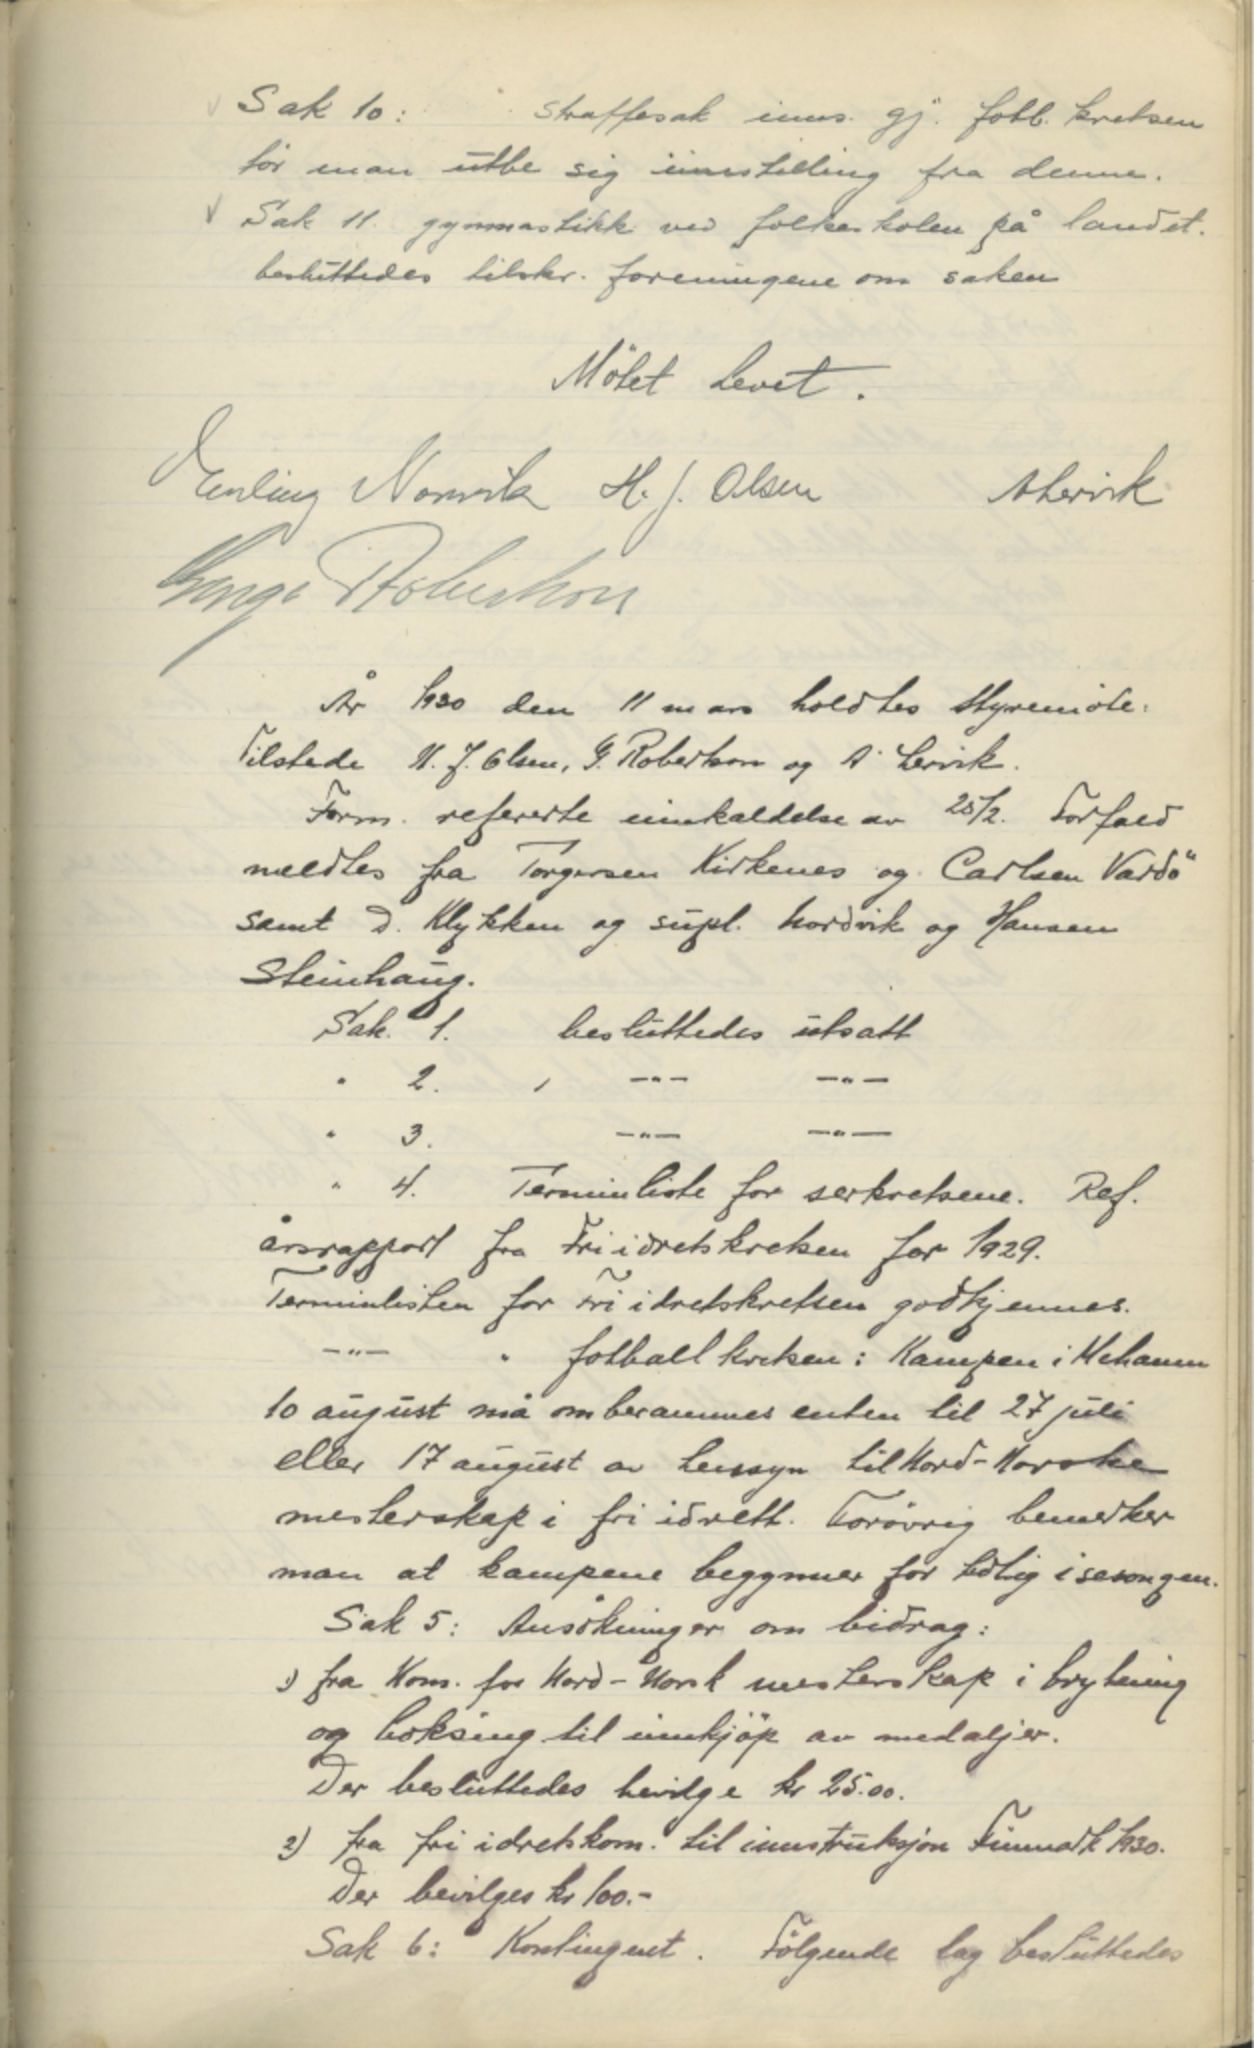 Sak 10: Straffesak inns. gj. fotb. kretsen
bør man utbe sig innstilling fra denne.
Sak 11. gymnastikk ved folkeskolen på landet.
besluttedes tilskr. foreningene om saken
Mötet hevet.
Erling Norvik H. J. Olsen A Lervik
Robertson
År 1930 den 11 mars holdtes styremöte.
Tilstede H. J. Olsen, G. Robertson og A. Lervik.
Form. refererte innkaldelse av 25/2. Forfald
meldtes fra Torgersen Kirkenes og Carlsen Vardö
samt D. Klykken og supl. Nordvik og Hansen
Steinhaug.
Sak. 1. besluttedes utsatt
" 2. , -"- -"-
" 3. -"- -"-
" 4. Terminliste for serkretsene. Ref.
årsrapport fra Fri idretskretsen for 1929.
Terminlisten for Fri idretskretsen godkjennes.
-"- " fotball kretsen: Kampen i Mehamn
10 august må omberammes enten til 27 juli
eller 17 august av hensyn til Nord-Norske
mesterskap i fri idrett. Forövrig bemerker
man at kampene begynner for tidlig i sesongen.
Sak 5: Ansökninger om bidrag:
1) fra Kom. for Nord-Norsk mesterskap i brytning
og boksing til innkjöp av medaljer.
Der besluttedes bevilge kr 25.00.
2) fra fri idretskom. til innstruksjon Finnmark 1930.
Der bevilges kr 100.-
Sak 6: Kontingent. Fölgende lag besluttedes